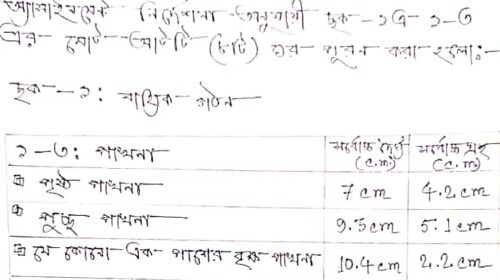 অ্যাসাইনমেন্ট নির্দেশনা অনুযায়ী ছক-১এ ১-৩
এর মোট আটটি (৮টি) ঘর পূরন করা হলো:-
ছক-১: বাহ্যিক গঠন
১-৩: পাখনা সর্বোচ্চ দৈর্ঘ্য (c.m.) সর্বোচ্চ প্রস্থ (c.m.)
পৃষ্ঠ পাখনা 7 cm 4.2 cm
পুচ্ছ পাখনা 9.5 cm 5.1 cm
যে কোনো এক পাশের বক্ষ পাখনা 10.4 cm 2.2 cm